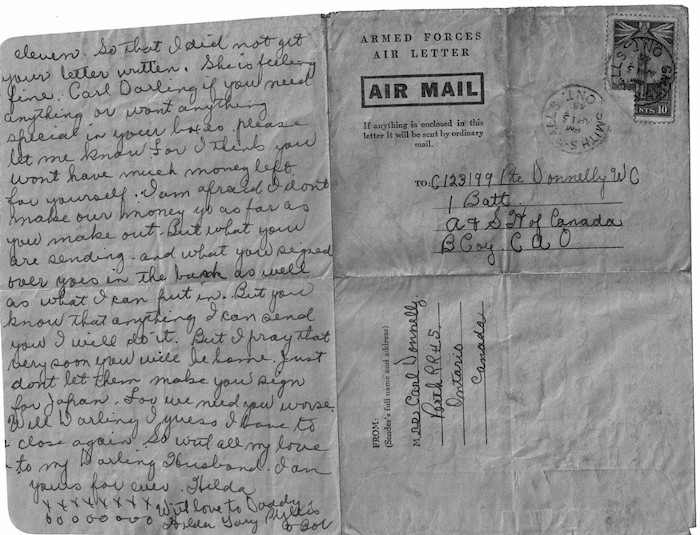 eleven. So that I did not get
your letter written. She is feeling
fine. Carl Darling if you need
anything or want anything
special in your boxes please
let me know for I think you
wont have much money left
for yourself. I am afraid I dont
make our money go as far as
you make out. But what you
are sending. and what you signed
over goes in the bank as well
as what I can put in. But you
know that anything I can send
you I will do it. But I pray that
very soon you will be home. Just
dont let them make you sign
for Japan. For we need you worse.
Well Darling I guess I have to
close again. So with all my love
to my Darling Husband. I am
yours for ever. Hilda
x x x x x x x x With love to Daddy
o o o o o o o o Hilda Gary Phyllis
& Bob
ARMED FORCES
AIR LETTER
AIR MAIL
If anything is enclosed in this
letter it will be sent by ordinary
mail.
TO: C123199 Pte Donnelly W C
1 Batt.
A & S H of Canada
B Coy C A O
FROM:
(Sender's full name and address)
Mrs Carl Donnelly
Perth RR#5
Ontario
Canada
SMITHS FALLS ONT.
PM
CENTS 10